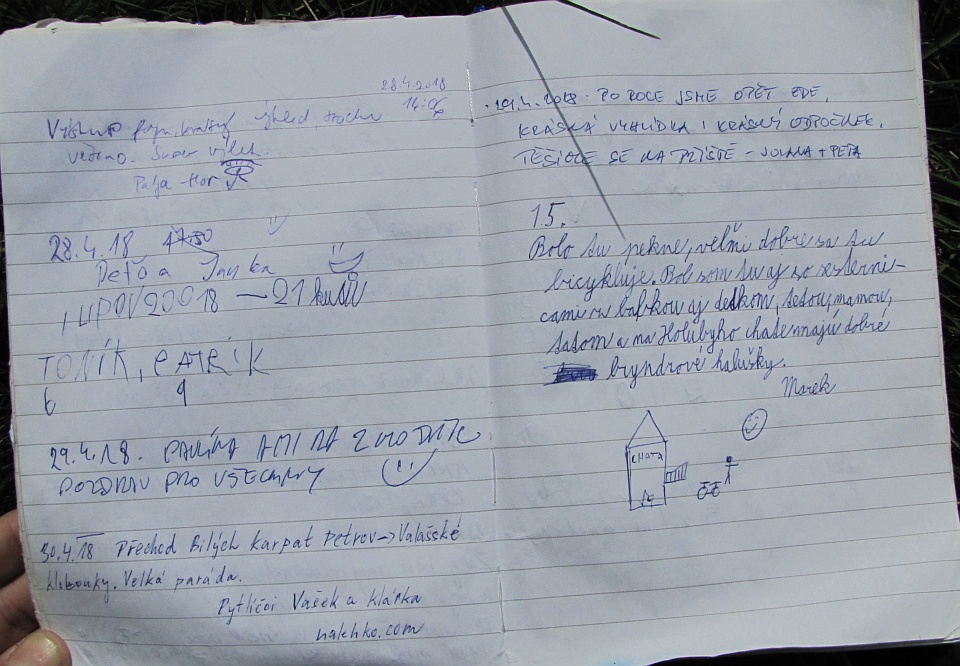 28.4.2018
14:06
výhled, trochu
větrno. Super výlet.
28.4.18
Peťo a Janka
LIPOV 2018 — 21 kusů
TONÍK, PATRÍK
6 9
29.4.18. PAVLÍNA A MILA Z HODONÍNA
POZDRAV PRO VŠECHNY
30.4.18 Přechod Bílých karpat Petrov → Valašské
klobouky. Velká paráda.
Pytlíčci Vašek a klárka
nalehko.com
29.4.2018 PO ROCE JSME OPĚT ZDE.
KRÁSNÁ VYHLÍDKA I KRÁSNÝ ODPOČINEK.
TĚŠÍCÍ SE NA PŘÍŠTĚ - JOLANA + PEŤA
1.5.
Bolo tu pekne, veľmi dobre sa tu
bicykluje. Bol som tu aj so sesterni-
cami s babkou aj dedkom, tetou, mamou,
tatom a na Holubyho chate majú dobré
bryndzové halušky.
Marek
CHATA